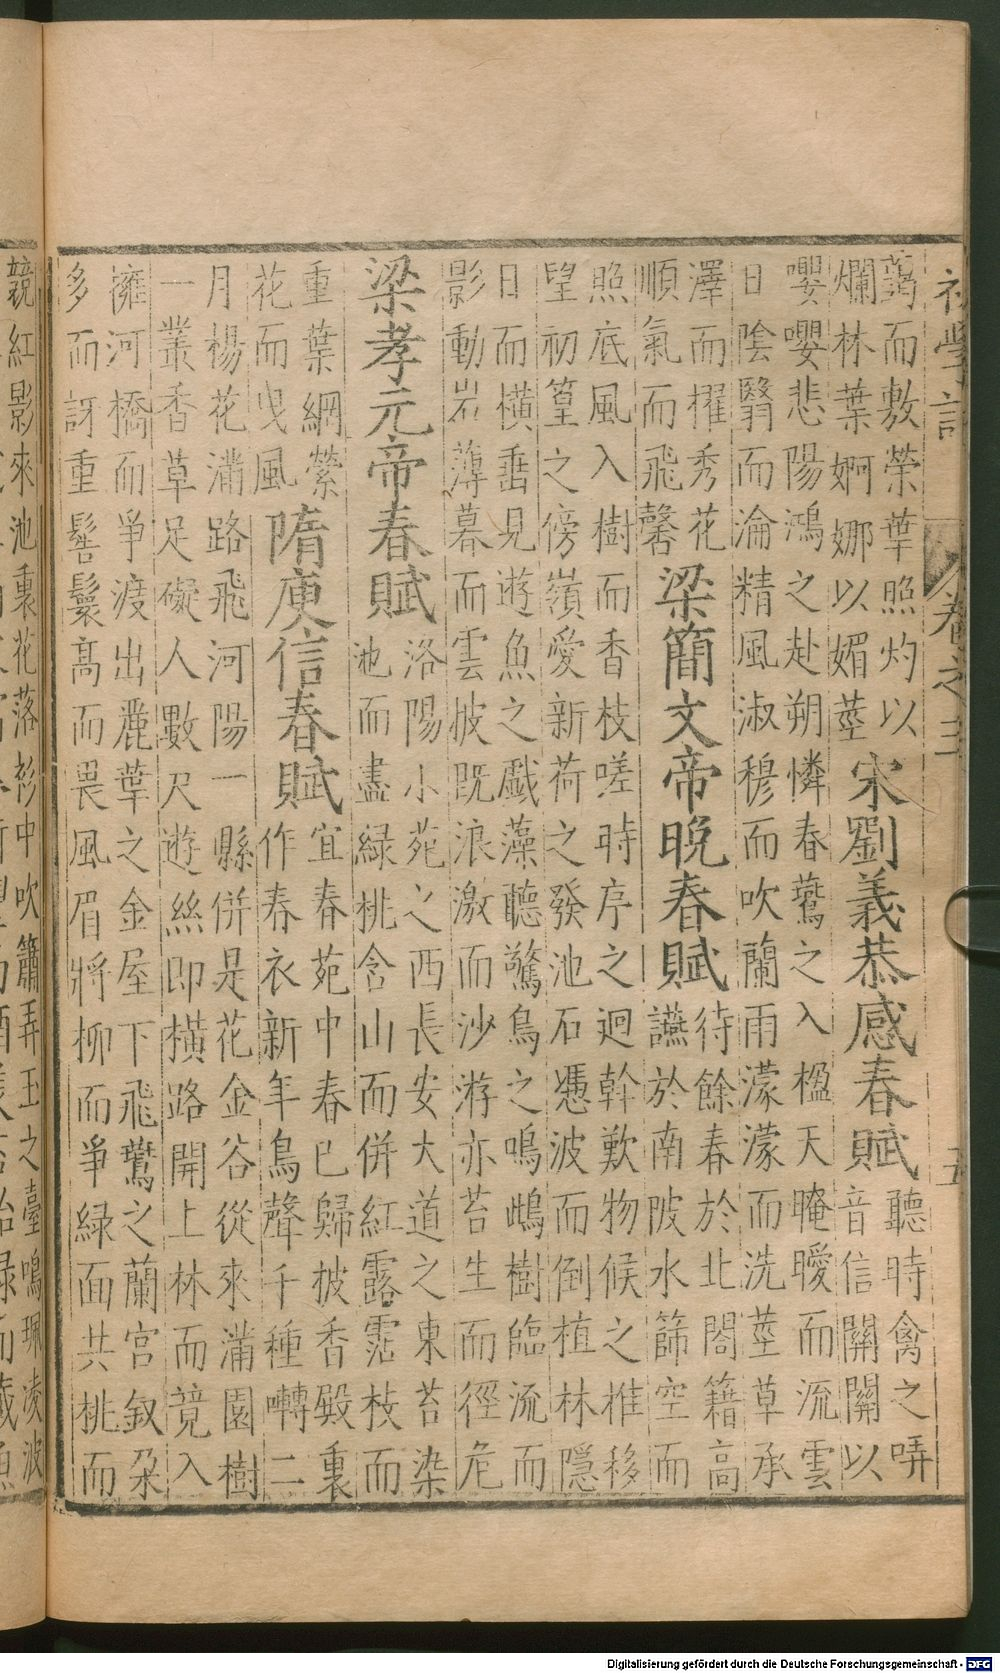 初學記
卷之三
五
藹而敷榮葉照灼以
爛林葉婀娜以媚莖
宋劉義恭感春賦
聽時禽之哢
音信關關以
嚶嚶悲陽鴻之赴朔憐春鶯之入楹天晻曖而流雲
日陰翳而淪精風淑穆而吹蘭雨濛濛而洗莖草承
澤而擢秀花
順氣而飛馨
梁簡文帝晚春賦
待餘春於北閣籍高
讌於南陂水篩空而
照底風入樹而香枝嗟時序之迴斡歎物候之推移
望初篁之傍嶺愛新荷之發池石憑波而倒植林隱
日而橫垂見遊魚之戲藻聽驚鳥之鳴鴟樹臨流而
影動岩薄暮而雲披既浪激而沙游亦苔生而徑危
梁孝元帝春賦
洛陽小苑之西長安大道之東苔染
池而盡綠桃含山而併紅露霑枝而
重葉網縈
花而曳風
隋庾信春賦
宜春苑中春已歸披香殿裏
作春衣新年鳥聲千種囀二
月楊花滿路飛河陽一縣併是花金谷從來滿園樹
一叢香草足礙人數尺遊絲即橫路開上林而竟入
擁河橋而爭渡出麗葉之金屋下飛鸎之蘭宮釵朵
多而訝重髻鬟高而畏風眉將柳而爭綠面共桃而
競紅影來池裏花落衫中吹簫弄玉之臺鳴珮凌波
Digitalisierung gefördert durch die Deutsche Forschungsgemeinschaft - DFG